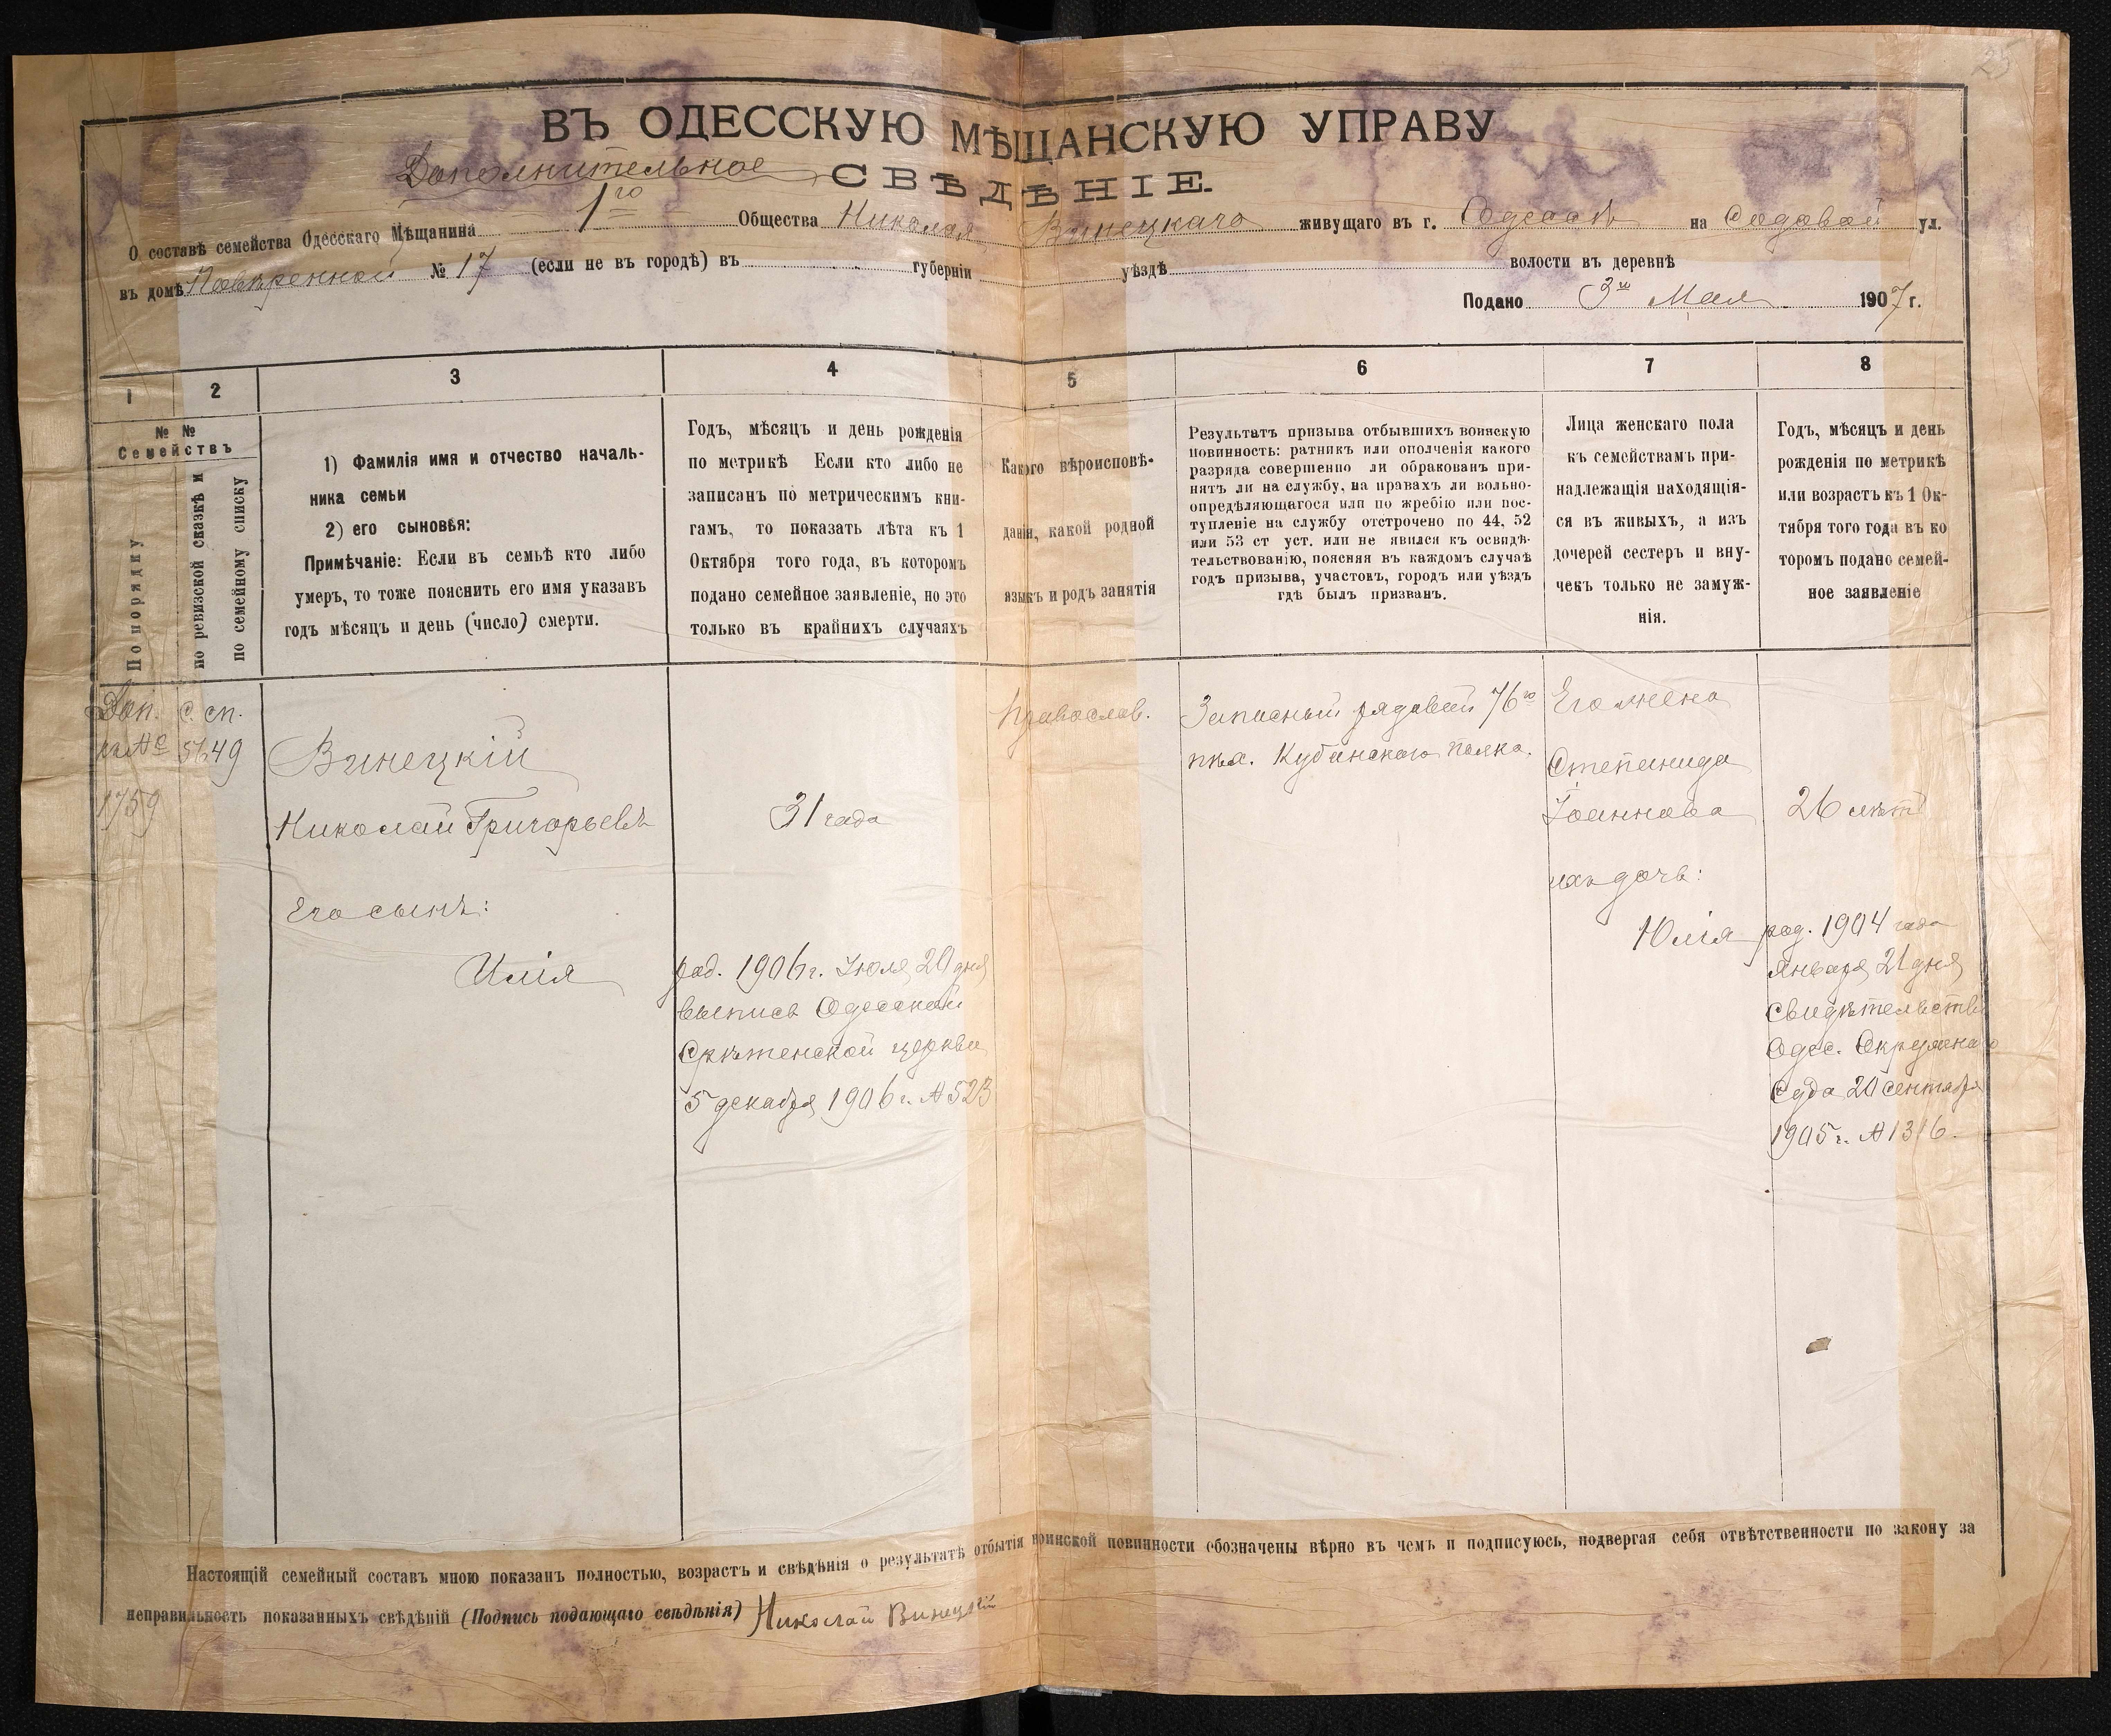 25
ВЪ ОДЕССКУЮ МѢЩАНСКУЮ УПРАВУ
Дополнительное СВѢДѢНІЕ.
О составѣ семейства Одесскаго Мѣщанина 1го Общества Николая Винецкаго живущаго въ г. Одессѣ на Садовой ул.
въ домѣ № 17 (если не въ городѣ) въ губерніи уѣздѣ волости въ деревнѣ
Подано 3го Мая 1907 г.
1 2 3 4 5 6 7 8
№ №
Семействъ
По порядку
по ревизской сказкѣ и
по семейному списку
1) Фамилія имя и отчество началь-
ника семьи
2) его сыновья:
Примѣчаніе: Если въ семьѣ кто либо
умеръ, то тоже пояснить его имя указавъ
годъ мѣсяцъ и день (число) смерти.
Годъ, мѣсяцъ и день рожденія
по метрикѣ Если кто либо не
записанъ по метрическимъ кни-
гамъ, то показать лѣта къ 1
Октября того года, въ которомъ
подано семейное заявленіе, но это
только въ крайнихъ случаяхъ
Какого вѣроисповѣ-
данія, какой родной
языкъ и родъ занятія
Результатъ призыва отбывшихъ воинскую
повинность: ратникъ или ополченія какого
разряда совершенно ли обракованъ при-
нятъ ли на службу, на правахъ ли вольно-
опредѣляющагося или по жребію или пос-
тупленіе на службу отстрочено по 44, 52
или 53 ст уст. или не явился къ освидѣ-
тельствованію, поясняя въ каждомъ случаѣ
годъ призыва, участокъ, городъ или уѣздъ
гдѣ былъ призванъ.
Лица женскаго пола
къ семействамъ при-
надлежащія находящія-
ся въ живыхъ, а изъ
дочерей сестеръ и вну-
чекъ только не замуж-
нія.
Годъ, мѣсяцъ и день
рожденія по метрикѣ
или возрастъ къ 1 Ок-
тября того года въ ко
торомъ подано семей-
ное заявленіе
Доп.
къ №
1759
С. сп.
5649
Винецкій
Николай Григорьевъ
Его сынъ:
Илія
31 года
род. 1906 г. Іюля 20 дня
выпись Одесской
Срѣтенской церкви
5 декабря 1906 г. № 523
Православ.
Запасный рядовой 76го
пѣх. Кубанскаго полка.
Его жена
Степанида
Іоаннова
ихъ дочь:
Юлія
26 лѣтъ
род. 1904 года
января 21 дня
свидѣтельство
Одес. Окружнаго
Суда 20 сентября
1905 г. № 1316.
Настоящій семейный составъ мною показанъ полностью, возрастъ и свѣдѣнія о результатѣ отбытія воинской повинности обозначены вѣрно въ чемъ и подписуюсь, подвергая себя отвѣтственности по закону за
неправильность показанныхъ свѣдѣній (Подпись подающаго свѣдѣнія) Николай Винецкій